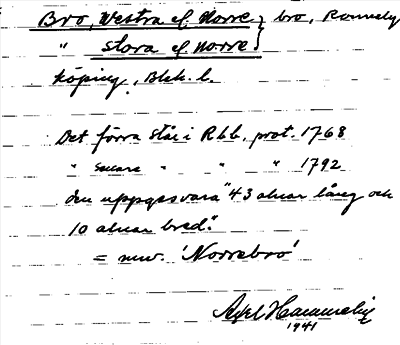 Bro, Västra el. Norre } bro, Ronneby
" Stora el. Norre }
köping, Blek. l.
Det förra står i Rbb. prot. 1768
" senare " " " 1792
den uppges vara "43 alnar lång och
10 alnar bred".
= nuv. 'Norrebro'
Axel
1941